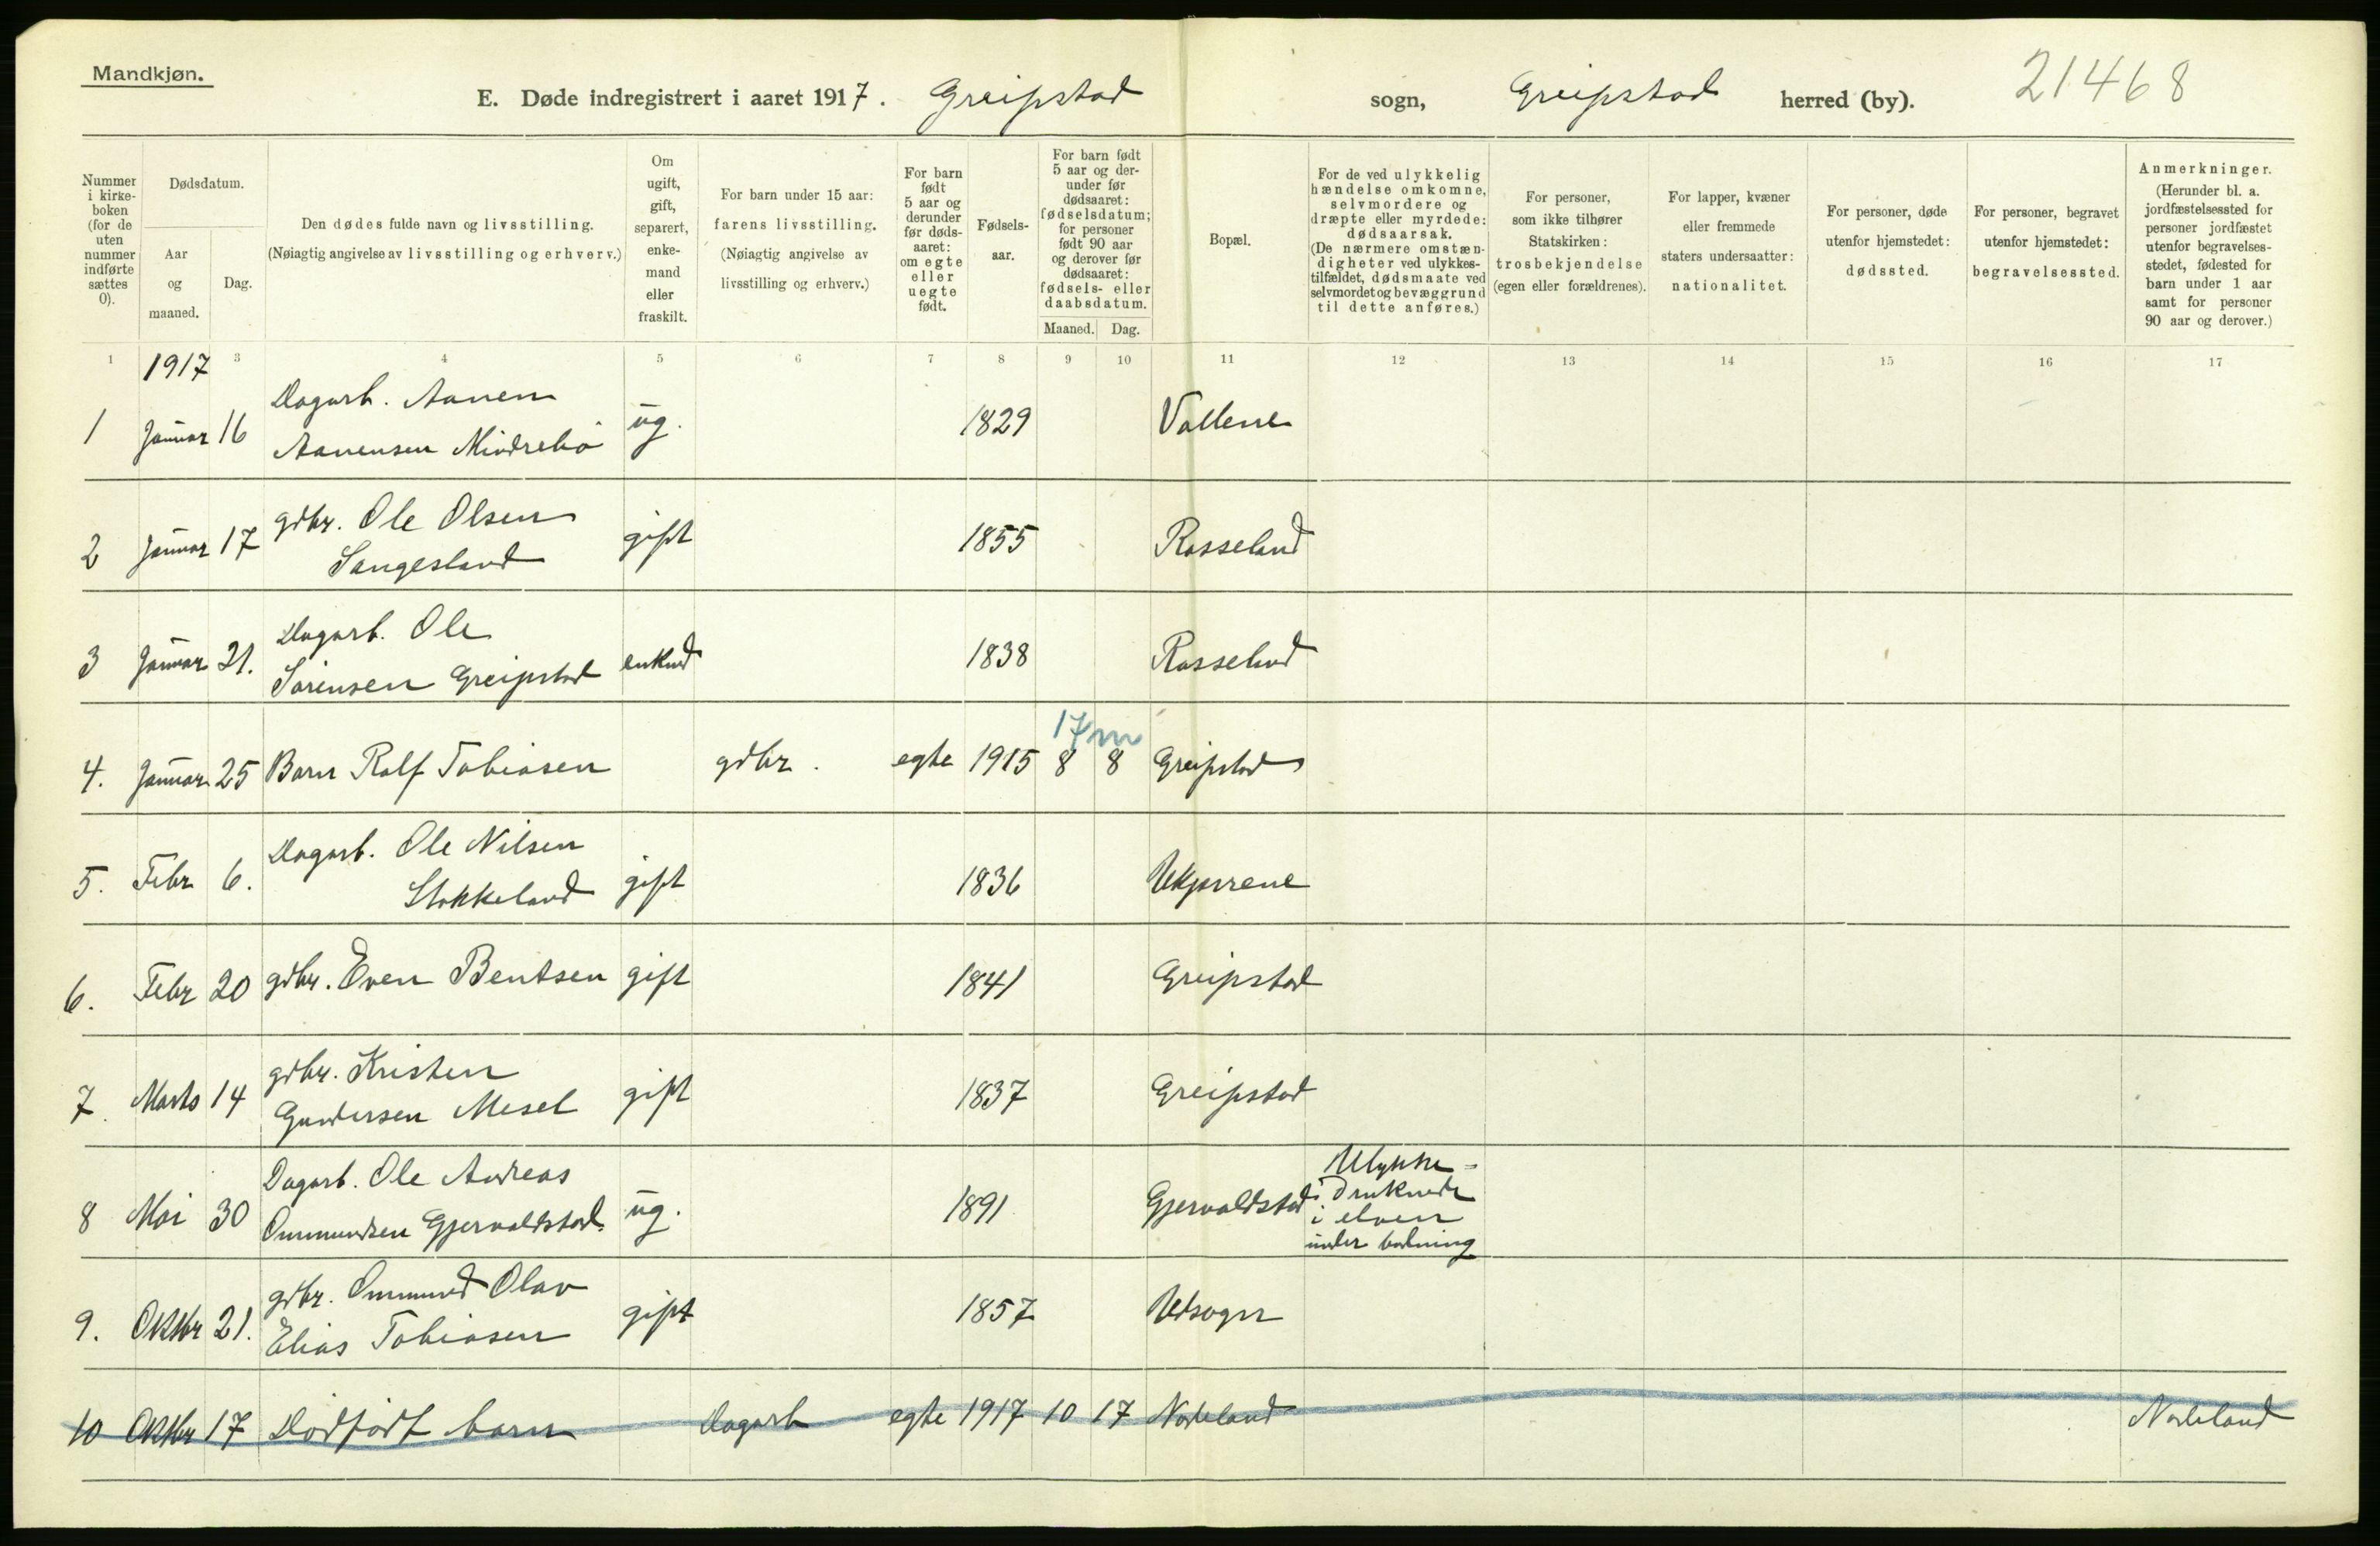 Mandkjøn.
E. Døde indregistrert i aaret 1917. Greipstad sogn, Greipstad herred (by). 21468
Nummer i kirke-boken (for de uten nummer indførte sættes 0).
Dødsdatum.
Aar og maaned.
Dag.
Den dødes fulde navn og livsstilling.
(Nøiagtig angivelse av livsstilling og erhverv.)
Om ugift, gift, separert, enke-mand eller fraskilt.
For barn under 15 aar: farens livsstilling. (Nøiagtig angivelse av livsstilling og erhverv.)
For barn født 5 aar og derunder før døds-aaret: om egte eller uegte født.
Fødsels-aar.
For barn født 5 aar og der-under før dødsaaret: fødselsdatum; for personer født 90 aar og derover før dødsaaret: fødsels- eller daabsdatum.
Maaned. Dag.
Bopæl.
For de ved ulykkelig hændelse omkomne, selvmordere og dræpte eller myrdede: dødsaarsak. (De nærmere omstæn-digheter ved ulykkes-tilfældet, dødsmaate ved selvmordet og bevæggrund til dette anføres.)
For personer, som ikke tilhører Statskirken: trosbekjendelse (egen eller forældrenes).
For lapper, kvæner eller fremmede staters undersaatter: nationalitet.
For personer, døde utenfor hjemstedet: dødssted.
For personer, begravet utenfor hjemstedet: begravelsessted.
Anmerkninger. (Herunder bl. a. jordfæstelsessted for personer jordfæstet utenfor begravelses-stedet, fødested for barn under 1 aar samt for personer 90 aar og derover.)
1 3 4 5 6 7 8 9 10 11 12 13 14 15 16 17
1917
1 Januar 16 Dagarb. Aanen Aanensen Mindrebö ug. 1829 Vollene
2 Januar 17 gdbr. Ole Olsen Sangesland gift 1855 Rosseland
3 Januar 21. Dagarb. Ole Sörensen Greipstad enkmd 1838 Rosseland
17 m
4. Januar 25 Barn Rolf Tobiasen gdbr. egte 1915 8 8 Greipstad
5. Febr 6. Dagarb. Ole Nilsen Stokkeland gift 1836
6. Febr 20 gdbr. Even Bentsen gift 1841 Greipstad
7. Marts 14 gdbr. Kristen Gundersen Mesel gift 1837 Greipstad
8 Mai 30 Dagarb. Ole Andreas Ommundsen Gjervoldstad ug. 1891 Gjervoldstad Ulykke = druknede i elven under badning
9. Oktbr 21. gdbr. Ommund Olav Elias Tobiasen gift 1857 Udsogn
10 Oktbr 17 Dödfödt barn Dagarb egte 1917 10 17 Nodeland Nodeland